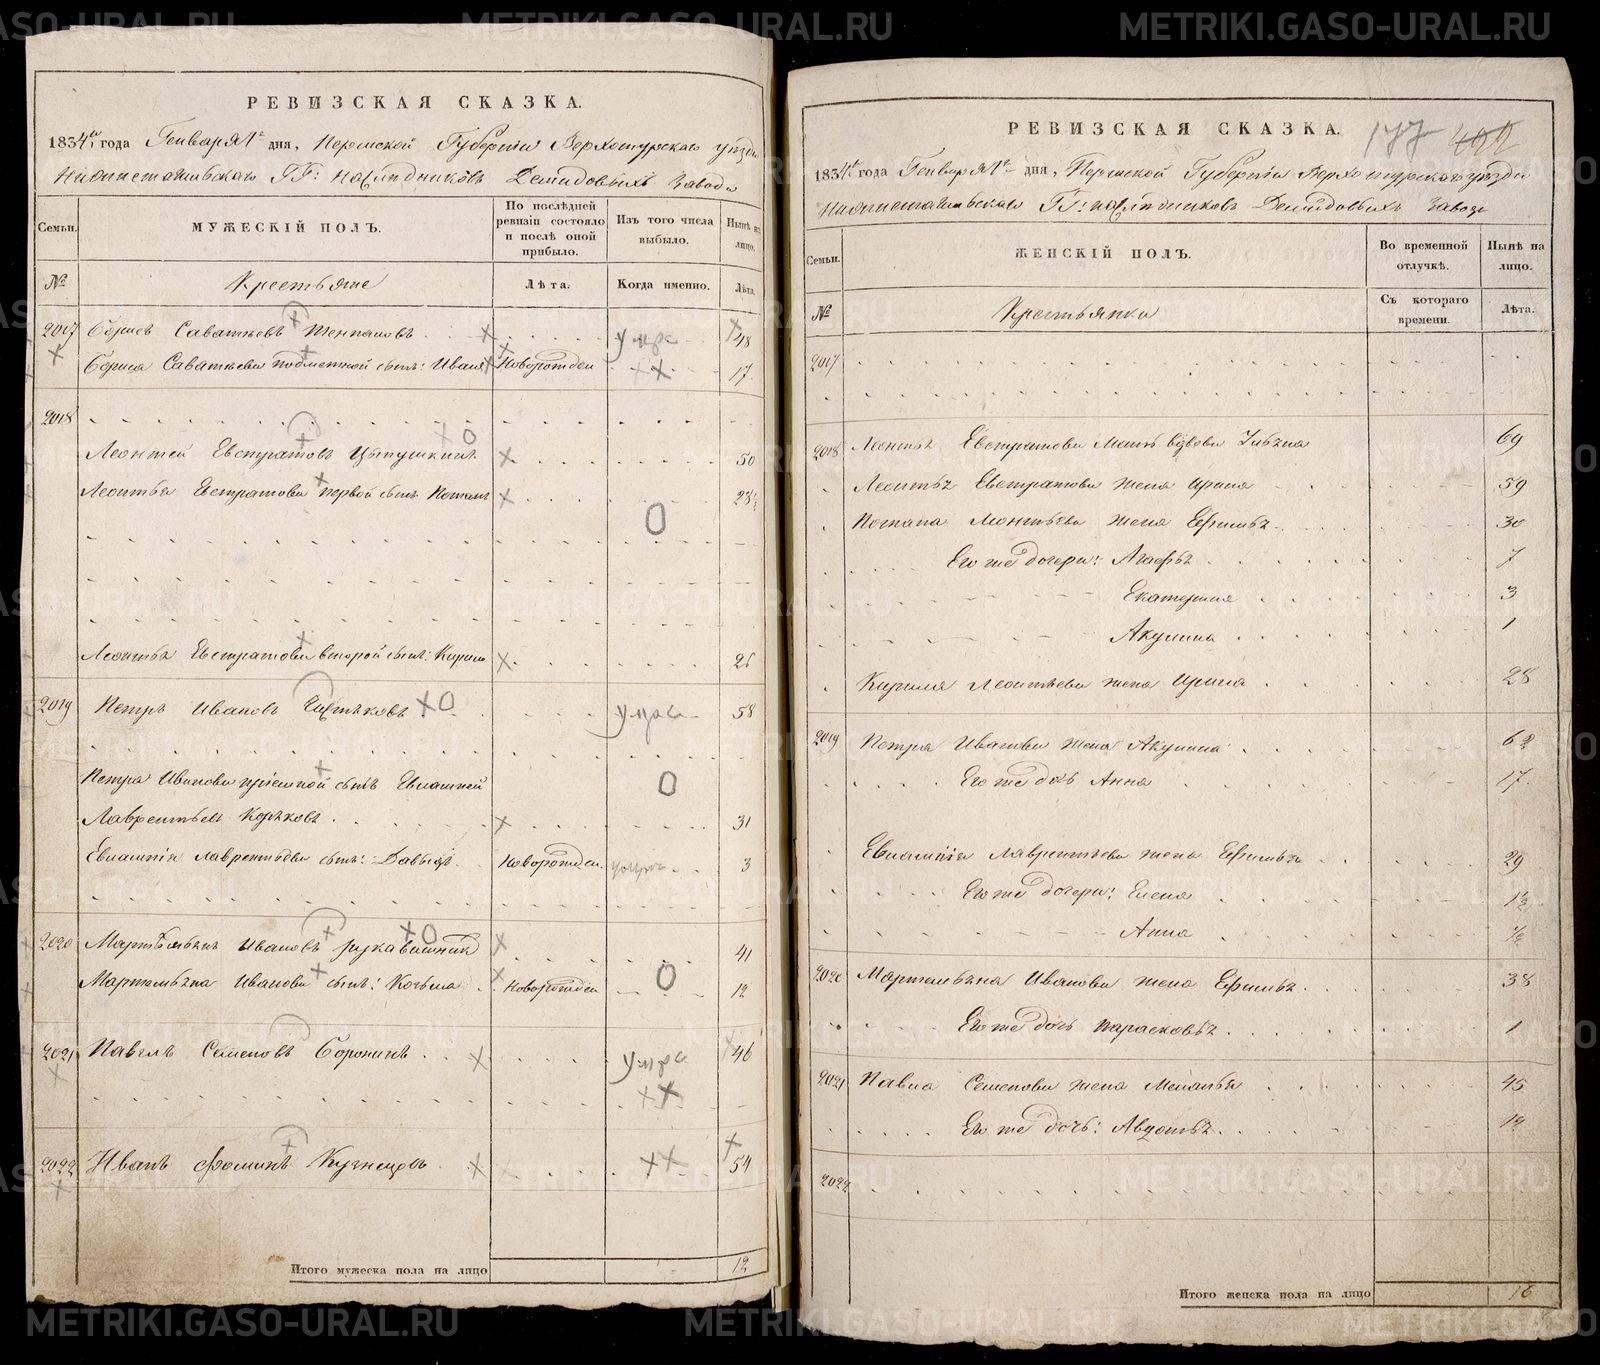 РЕВИЗСКАЯ СКАЗКА.
1834го года Генваря 1го дня, Пермской Губернии Верхотурскаго уезда
Нижнетагильскаго ГГ: наследниковъ Демидовыхъ завода
Семьи.
МУЖЕСКІЙ ПОЛЪ.
По послѣдней ревизіи состояло и послѣ оной прибыло.
Изъ того числа выбыло.
Нынѣ на лицо.
№
Крестьяне
Лѣта.
Когда именно.
Лѣта.
2017 Борисъ Саватеевъ умре 48
Бориса Саватеева подметной сынъ: Иванъ Новорожден 17
2018
Леонтей Евстратовъ 50
Леонтья Евстратова первой сынъ Потапъ 28½
Леонтья Евстратова второй сынъ: Кирилъ 25
2019 Петръ Ивановъ умре 58
Петра Иванова пріемной сынъ Евлампей
Лаврентьевъ 31
Евлампія Лаврентьева сынъ: Давыдъ Новорожден умре 3
2020 Мартемьянъ Ивановъ Рукавишник 41
Мартемьяна Иванова сынъ: Козьма Новорожден 12
2021 Павелъ Семеновъ Боронинъ умре 46
2022 Иванъ Фоминъ Кузнецовъ 54
Итого мужеска пола на лицо 12
РЕВИЗСКАЯ СКАЗКА.
177
1834го года Генваря 1го дня, Пермской Губернии Верхотурскаго уезда
Нижнетагильскаго ГГ: наследниковъ Демидовыхъ завода
Семьи.
ЖЕНСКІЙ ПОЛЪ.
Во временной отлучкѣ.
Нынѣ на лицо.
№
Крестьянки
Съ котораго времени.
Лѣта.
2017
2018 Леонтья Евстратова мать вдова 69
Леонтья Евстратова жена Ирина 59
Потапа Леонтьева жена Ефимья 30
Его же дочери: Агафья 7
Екатерина 3
Акулина 1
Кирила Леонтьева жена Ирина 28
2019 Петра Иванова жена Акулина 62
Его же дочь Анна 17
Евлампія Лаврентьева жена Ефимья 29
Его же дочери: Елена 1½
Анна ½
2020 Мартемьяна Иванова жена Ефимья 38
Его же дочь Парасковья 1
2021 Павла Семенова жена Меланья 45
Его же дочь: Авдотья 12
2022
Итого женска пола на лицо 16
METRIKI.GASO-URAL.RU